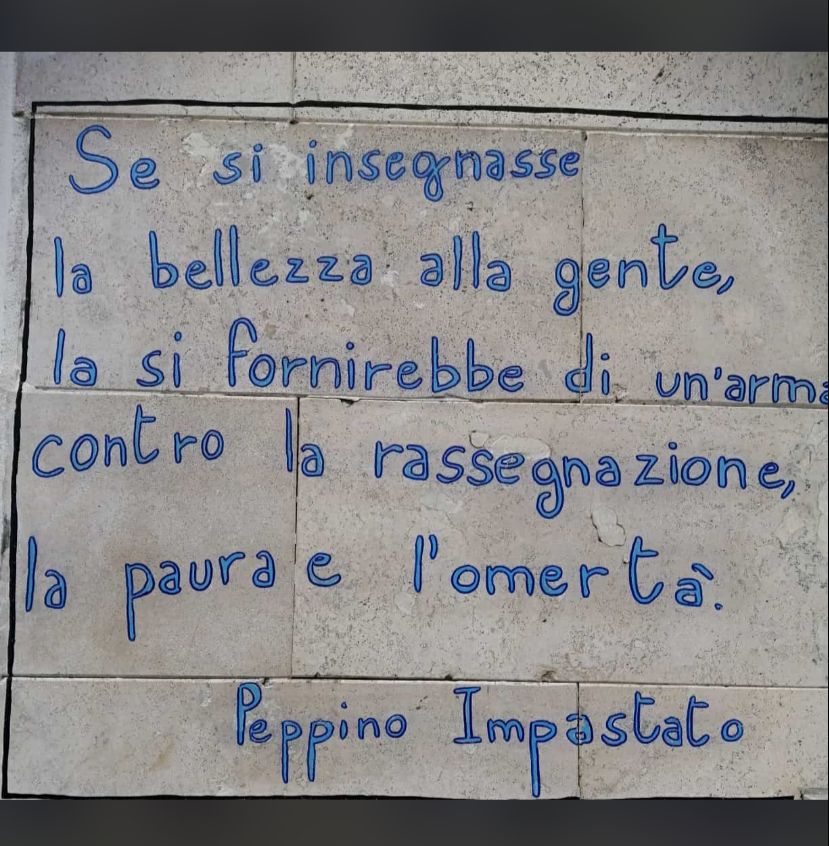 Se si insegnasse
la bellezza alla gente,
la si fornirebbe di un'arma
contro la rassegnazione,
la paura e l'omertà.
Peppino Impastato